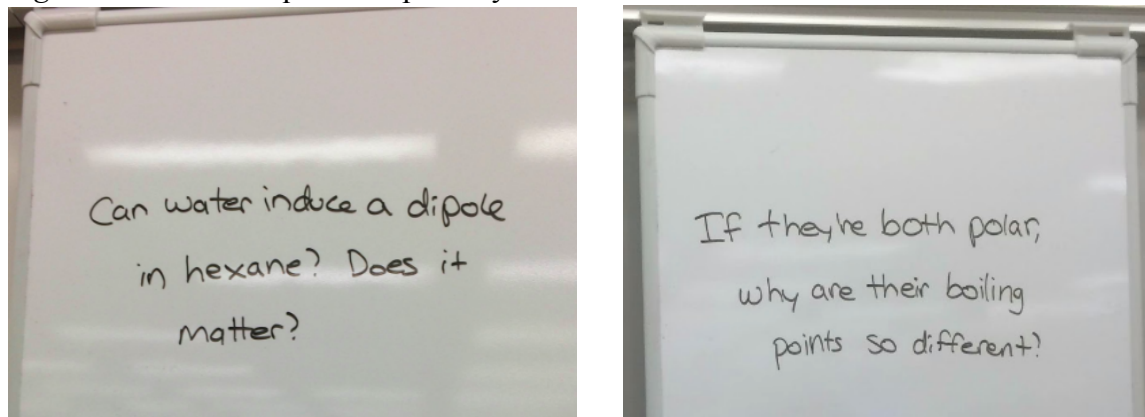 Can water induce a dipole
in hexane? Does it
matter?
If they're both polar,
why are their boiling
points so different?